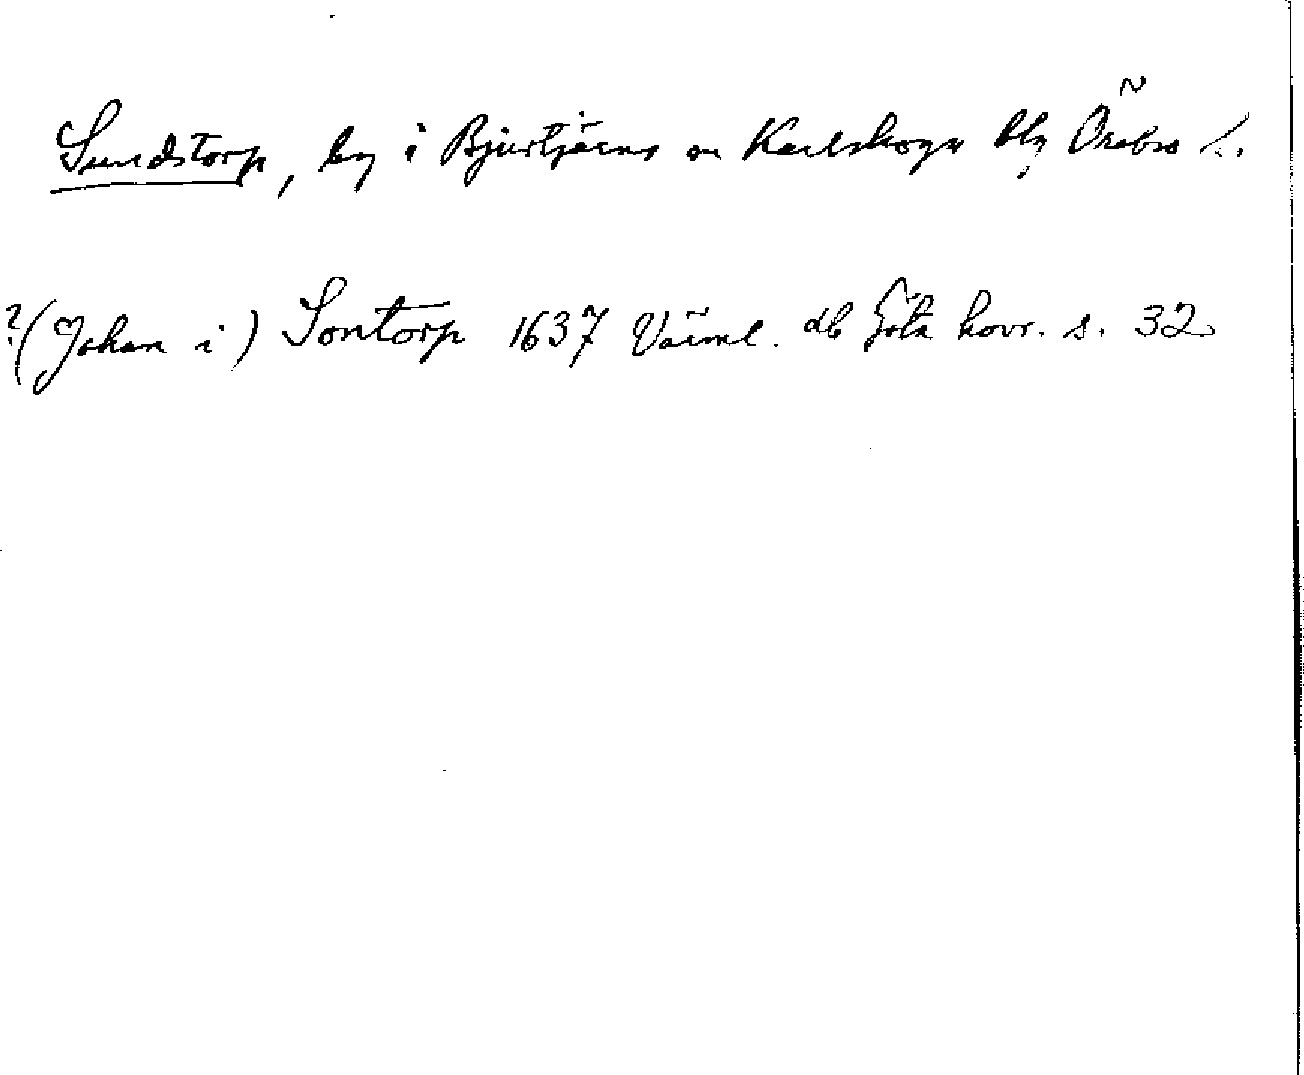 Sundstorp, by i Bjurtjärns sn Karlskoga blg Örebro l.
?(Johan i) Sontorp 1637 Värml. db Göta hovr. s. 32